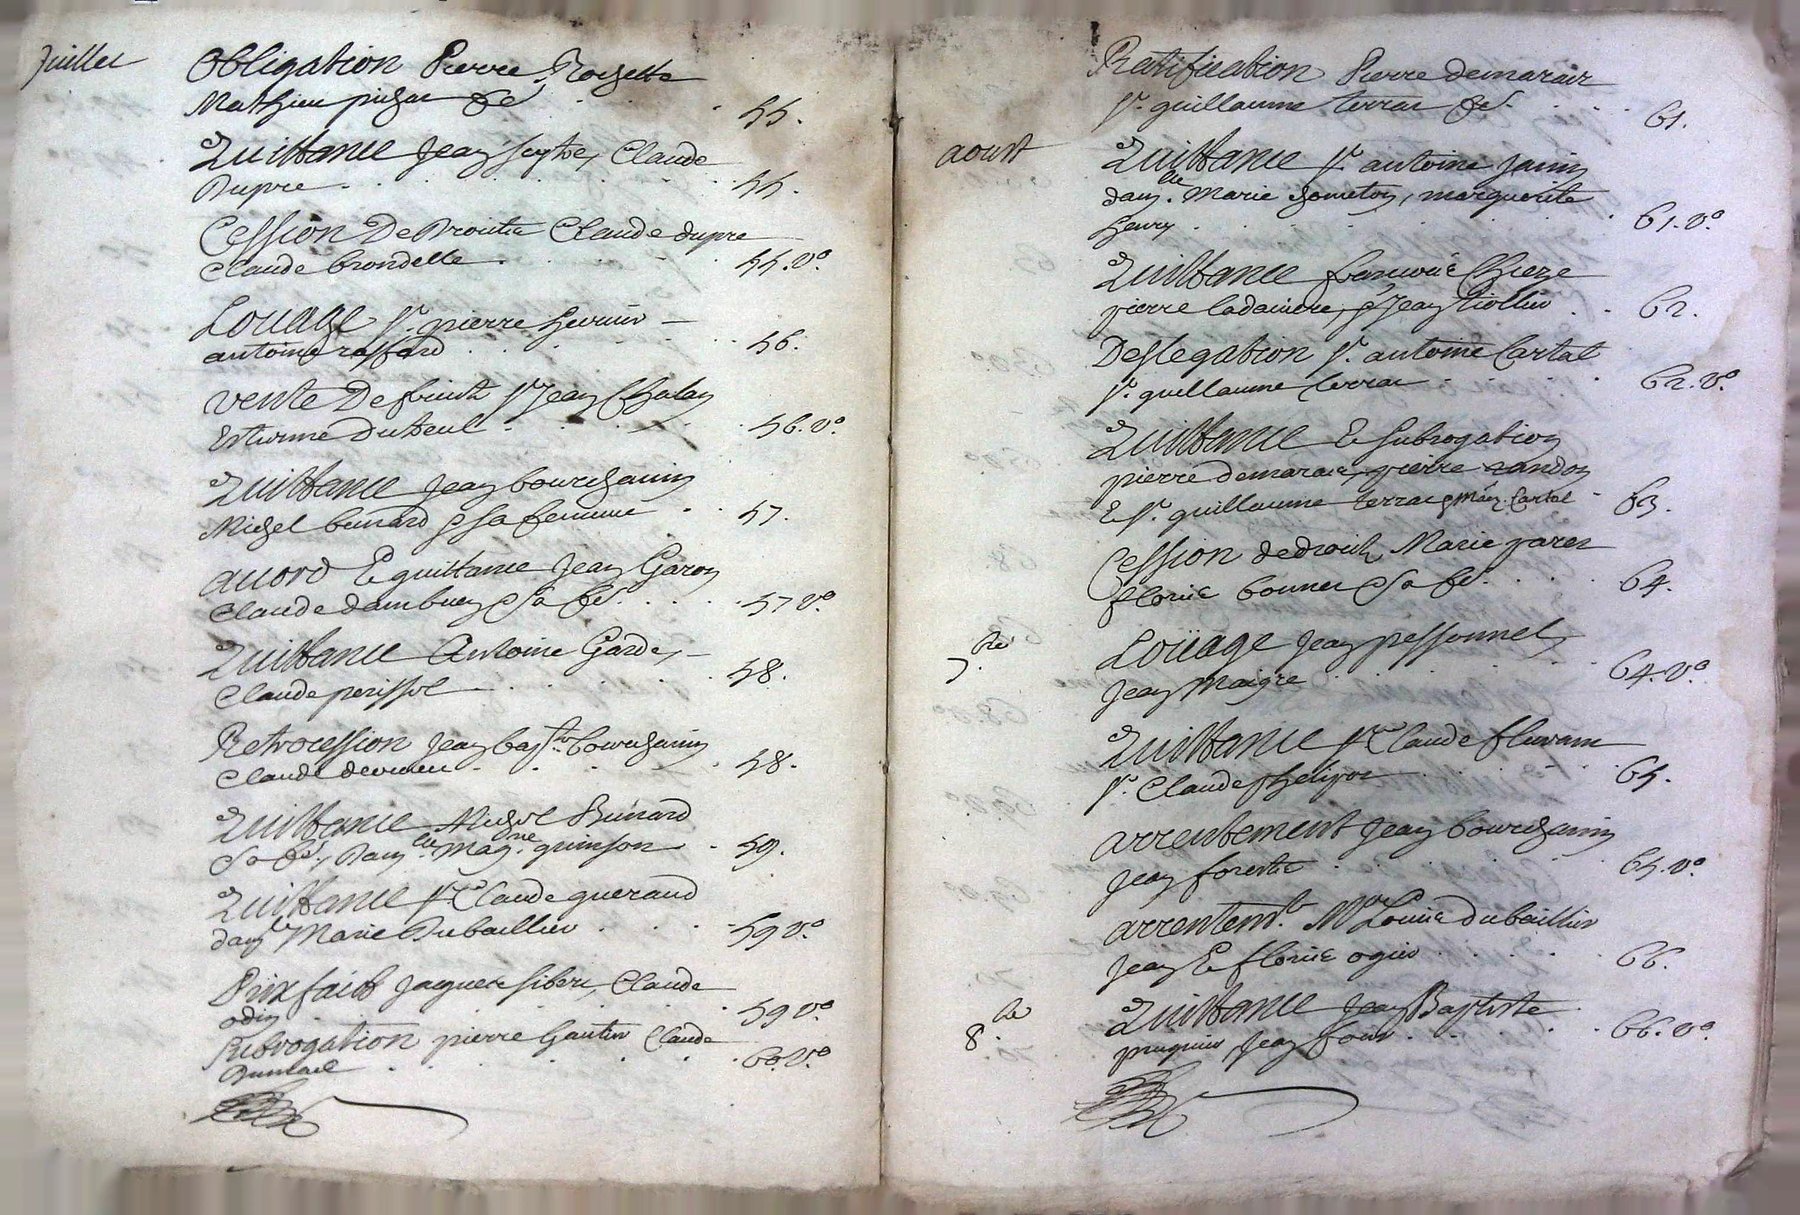 Juillet
Obligation Pierre Rozette
Mathieu pichar &c 55.
Quittance Jean Claude
Dupre 55.
Cession De Droitz Claude dupre
Claude brondelle 55. Vo.
Louage Sr. pierre
antoine raffard 56.
Vente De fruitz Sr Jean Chalan
Estienne Duteul 56. Vo.
Quittance Jean bourchanin
Michel bunard & sa femme 57.
acord Et quittance Jean Garon
Claude dambuen & sa fe. 57 Vo.
Quittance Antoine Garde,
Claude perissol 58.
Retrocession Jean bapte. bourchanin
Claude 58.
Quittance Michel Bunard
& sa fe., Damlle. Magne. grimson 59.
Quittance Sr Claude gueraud
daml Marie Dubaillier 59 Vo.
Prixfaict Jaques siberc, Claude
odin 59 Vo.
Subrogation pierre Gautier Claude
60. Vo.
Ratification Pierre demarair
Sr. guillaume terrac &c. 61.
aoust
Quittance Sr antoine Janin
damlle. Marie Gometon, marguerite
henry 61. Vo.
Quittance francoise Chieze
pierre ladaniere, & Jean Riollier 62.
Deslegation Sr. antoine Cartal
Sr. guillaume terrac 62. Vo.
Quittance Et Subrogation
pierre demarair, pierre randon
Et Sr. guillaume terrac & Cartal 63.
Cession de droitz Marie paret
fleurie bonnet & sa fe. 64.
7.bre
Loüage Jean pessonnel,
Jean Maigre 64. Vo.
Quittance Sr Claude fluvam
Sr. Claude phelipot 65.
arrentement Jean bourchanin
Jean forestie 65. Vo.
arrentemt. Mr Louis dubaillier
Jean Et fleurie ogier 66.
8.bre
Quittance Jean Baptiste
Jean four 66. Vo.